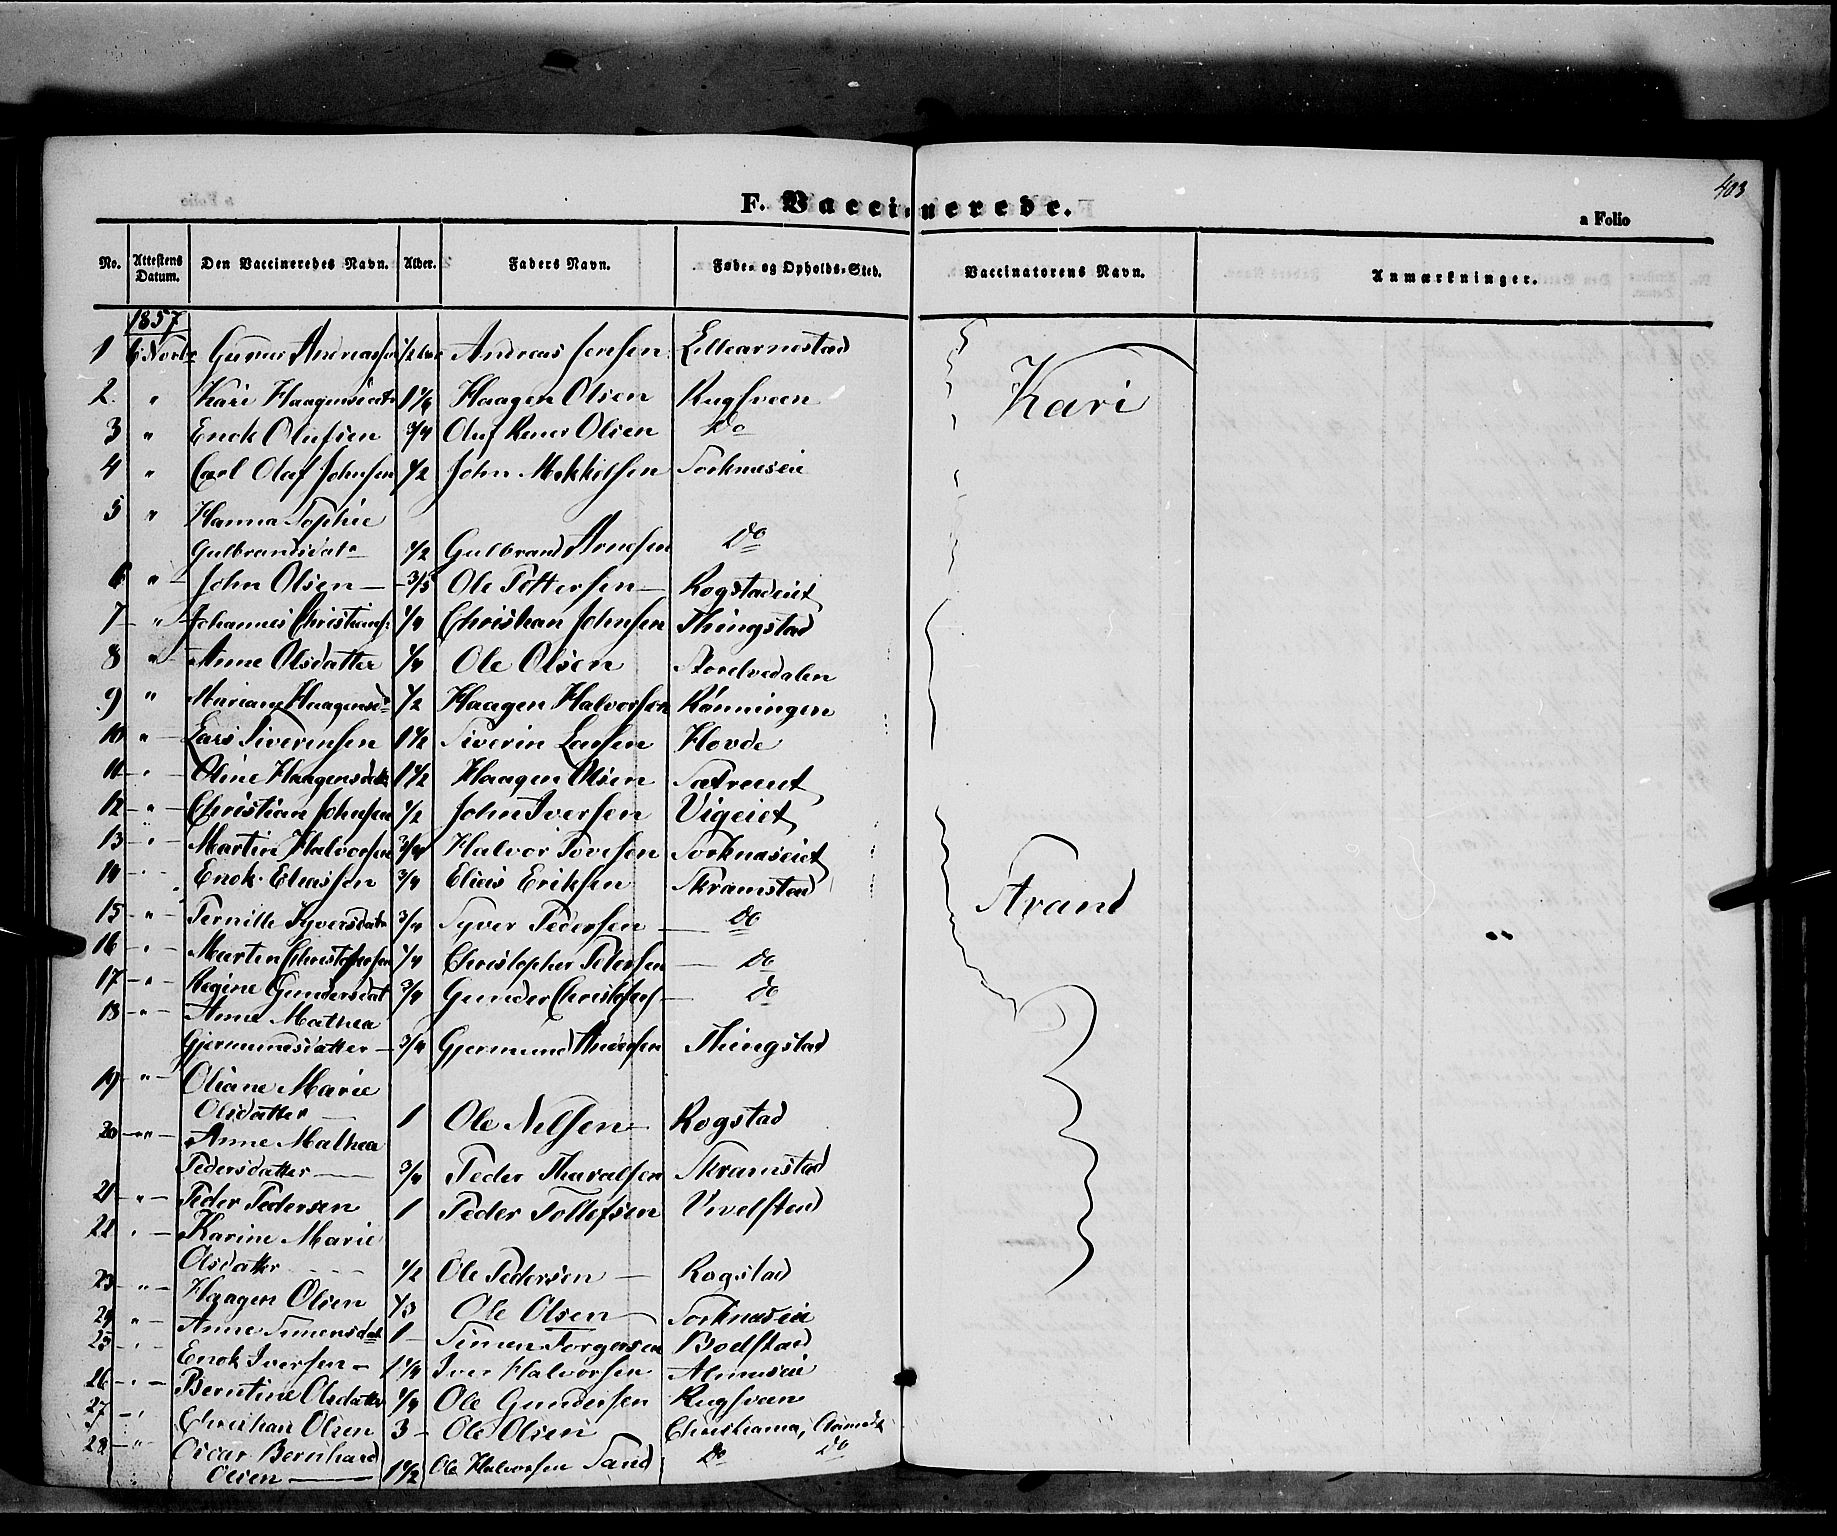 403
F. Vaccinerede.
a Folio
No. Attestens Datum. Den Vaccineredes Navn. Alder. Faders Navn. Føde- og Opholds-Sted. Vaccinatorens Navn. Anmærkninger.
1857
1 6 Novbr Gunar Andreassen 1/2 Andreas Jensen Lillearnestad
2. " Kari Haagensdatr 1 1/6 Haagen Olsen Rugsveen Kari
3 " Enok Olufsen 3/4 Oluf Olsen Do
4 " Carl Oluf Johnsen 1/2 John Mikkelsen Torknæseie
5 " Hanna Sophie
Gulbrandsdatr 1/2 Gulbrand Arnesen Do
6 " John Olsen 3/5 Ole Pettersen Rogstadeiet
7 " Johannes Christians. 1/4 Christian Johnsen Thingstad
8 " Anne Olsdatter 1/4 Ole Olsen
9 " Mariane Haagensd. 1/2 Haagen Halvorsen Rönningen
10 " Lars Siverinsen 1 1/2 Siverin Larsen Hovde
11 " Oline Haagensdatr 1 1/2 Haagen Olsen
12 " Christian Johnsen 1/2 John Iversen Vigeiet
13 " Martin Halvorsen 3/4 Halvor Tovesen Torknæseiet
14 " Enok Eliassen 3/4 Elias Eriksen Skramstad Strand
15 " Pernille Syversdatr 3/4 Syver Pedersen Do
16 " Martin Christophersen 1/4 Christopher Petersen Do
17 " Regine Gundersdat 3/4 Gunder Christophers Do
18 " Anne Mathea
Gjermundsdatter 3/4 Gjermund Andersen Thingstad
19 " Oliane Marie
Olsdatter 1 Ole Nilsen Rogstad
20 " Anne Mathea
Pedersdatter 3/4 Peder Tharaldsen Skramstad
21 " Peder Pedersen 1 Peder Tollefsen
22 " Karine Marie
Olsdatter 1/2 Ole Pedersen Rogstad
23 " Haagen Olsen 1/3 Ole Olsen Torknæseie
24 " Anne Simensdatr 1 Simen Torgersen Bodstad
25 " Enok Iversen 1 1/4 Iver Halvorsen
26 " Berntine Olsdatter 1/4 Ole Gundersen Rugsveen
27 " Christian Olsen 3 Ole Olsen Christiania,
28 " Oscar Bernhard
Olsen 1 1/2 Ole Halvorsen Sand Do Do